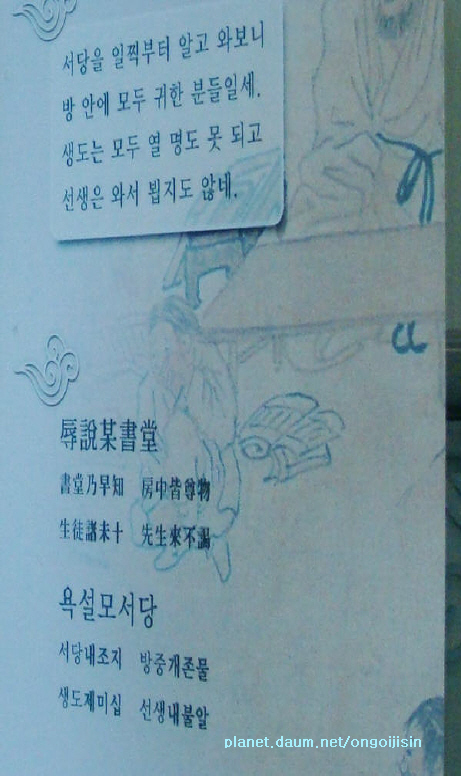 서당을 일찍부터 알고 와보니
방 안에 모두 귀한 분들일세.
생도는 모두 열 명도 못 되고
선생은 와서 뵙지도 않네.
辱說某書堂
書堂乃早知 房中皆尊物
生徒諸未十 先生來不謁
욕설모서당
서당내조지 방중개존물
생도제미십 선생내불알
planet.daum.net/ongoijisin